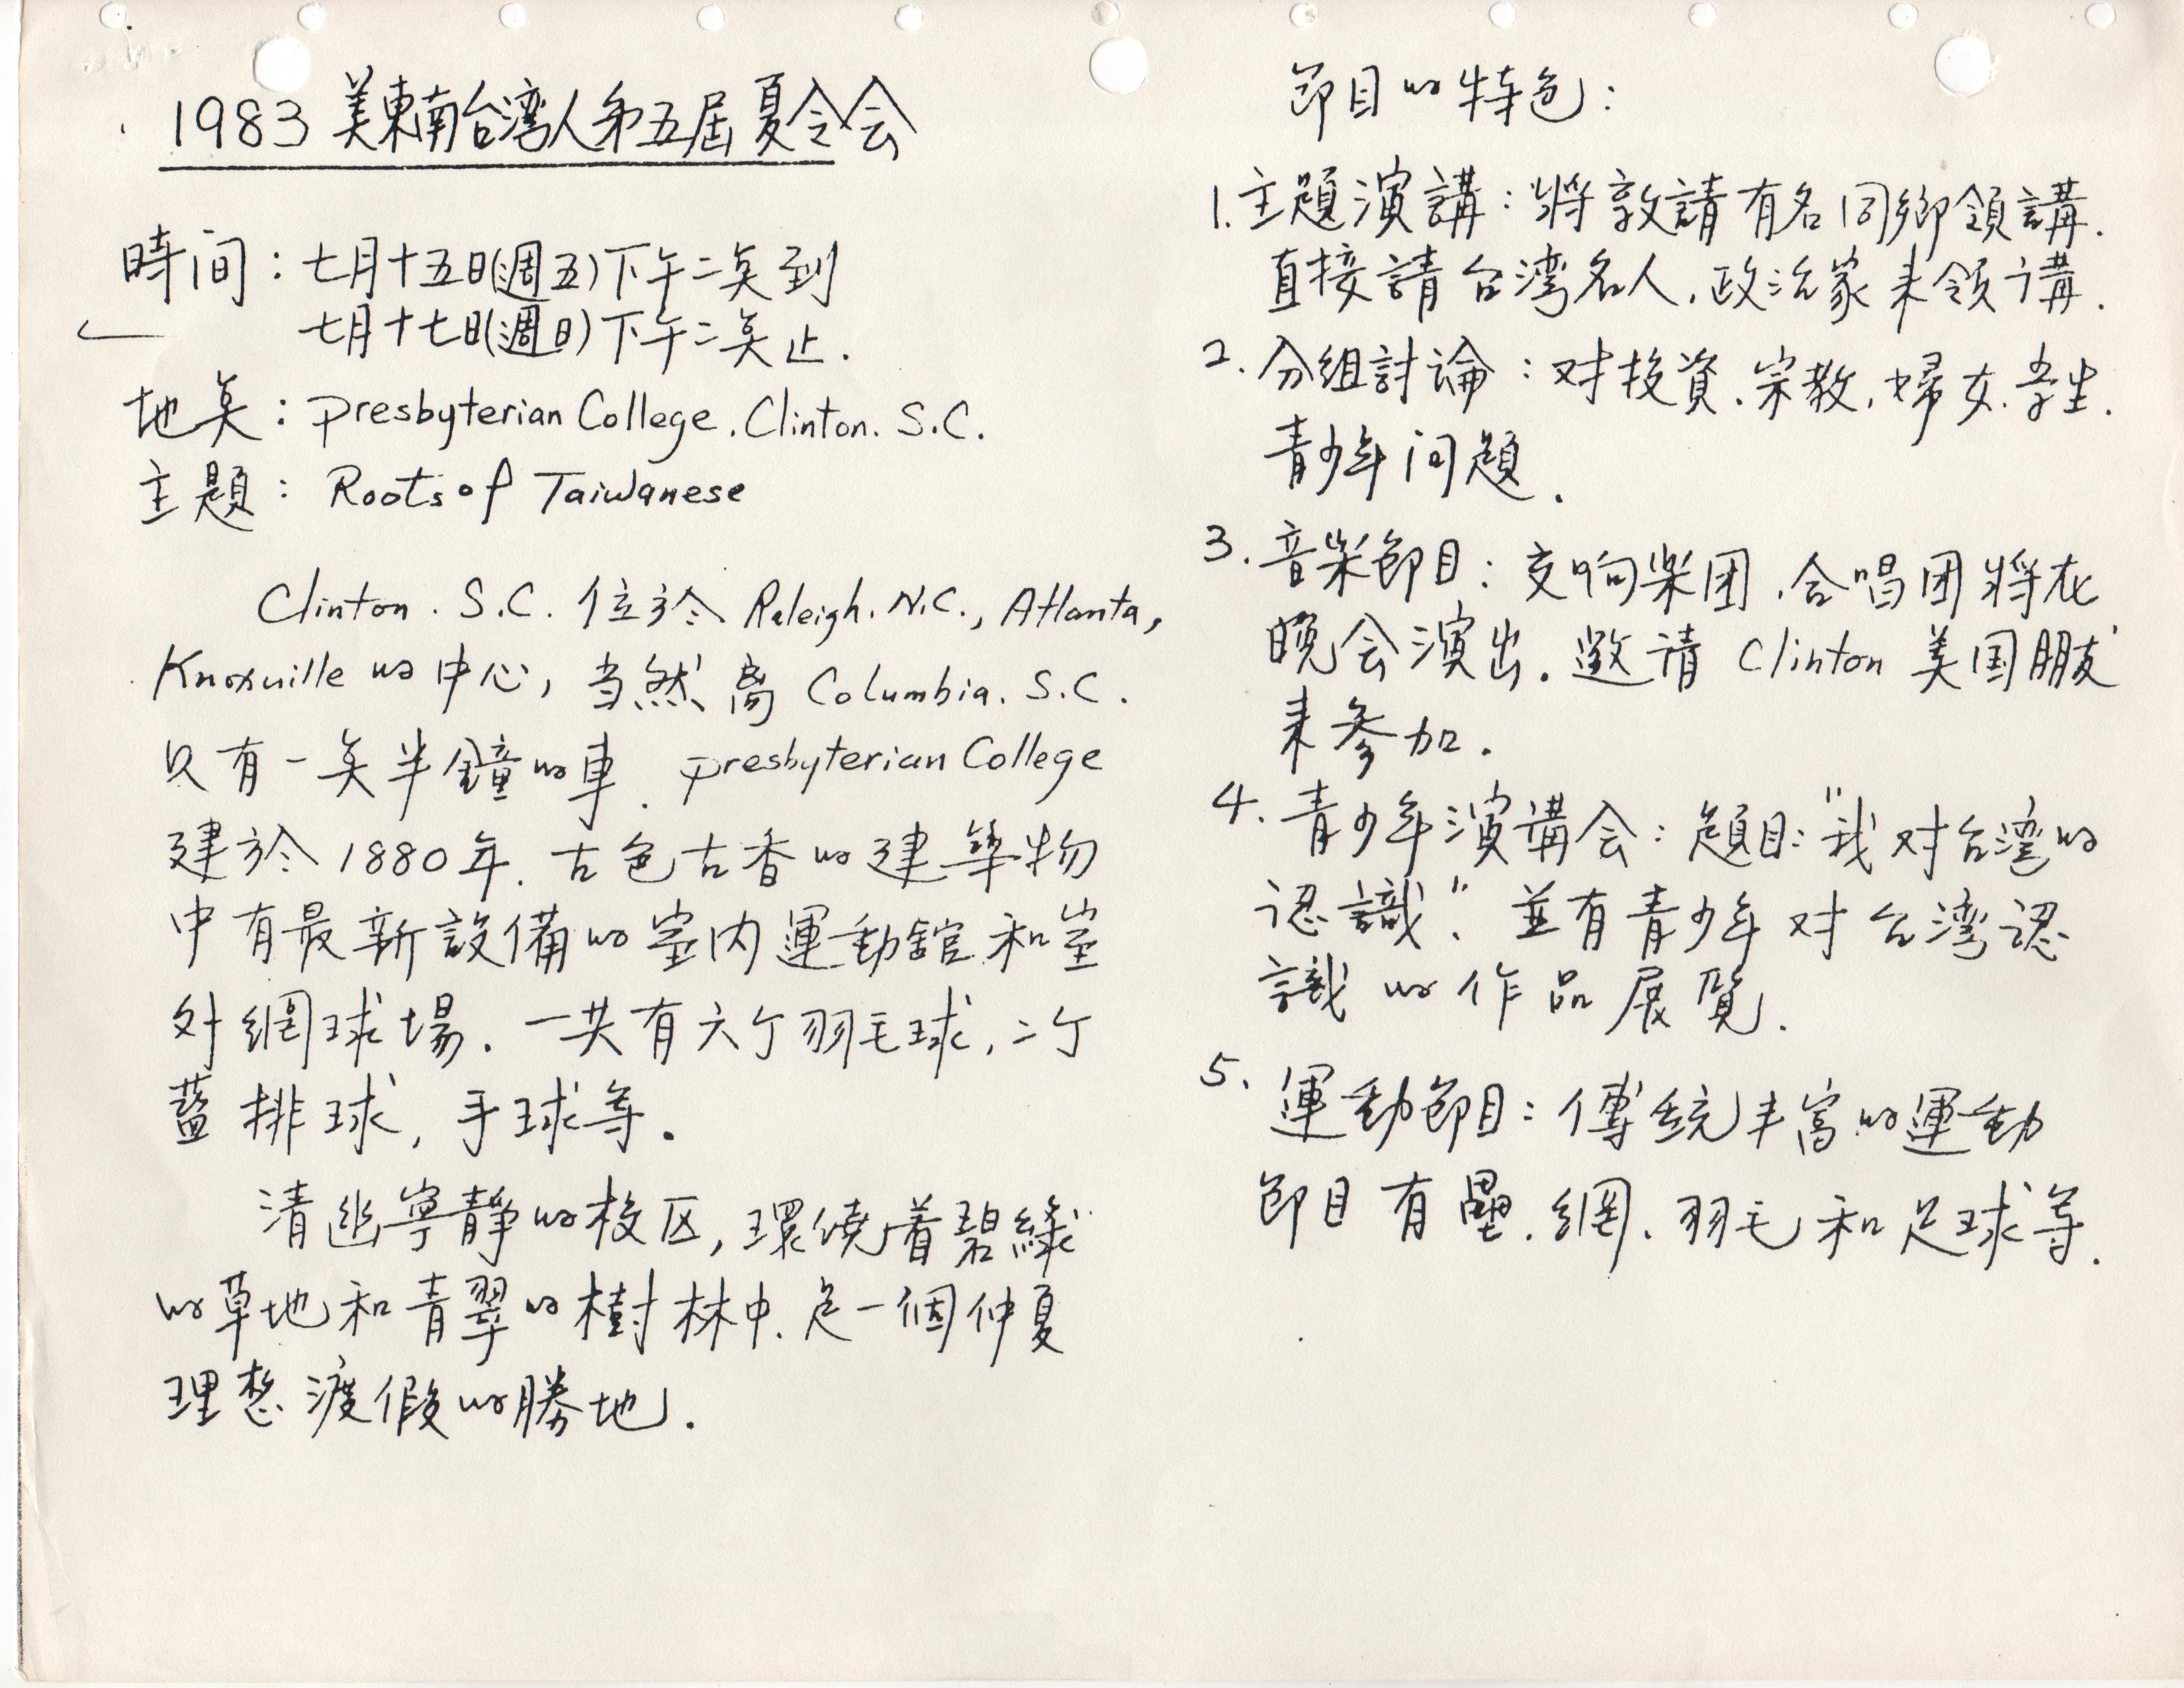 1983 美東南台湾人第五屆夏令会
時间：七月十五日(週五)下午二点到
七月十七日(週日)下午二点止.
地点：Presbyterian College. Clinton. S.C.
主題：Roots of Taiwanese
Clinton. S.C. 位於 Raleigh. N.C., Atlanta,
Knoxville 的中心, 当然离 Columbia. S.C.
只有一点半鐘的車. Presbyterian College
建於1880年. 古色古香的建築物
中有最新設備的室内運動舘和室
外網球場. 一共有六个羽毛球, 二个
藍排球, 手球等.
清幽寧靜的校区, 環繞着碧綠
的草地和青翠的樹林中. 是一個仲夏
理想渡假的勝地.
節目的特色：
1. 主題演講：將敦請有名同鄉領講.
直接請台湾名人, 政治家来領講.
2. 分組討論：对投資、宗教, 婦女. 学生.
青少年问題.
3. 音楽節目：交响楽团, 合唱团將在
晚会演出. 邀请 Clinton 美国朋友
来參加.
4. 青少年演講会：題目: "我对台湾的
認識". 並有青少年对台湾認
識的作品展覧.
5. 運動節目：傳統丰富的運動
節目有壘. 網. 羽毛和足球等.